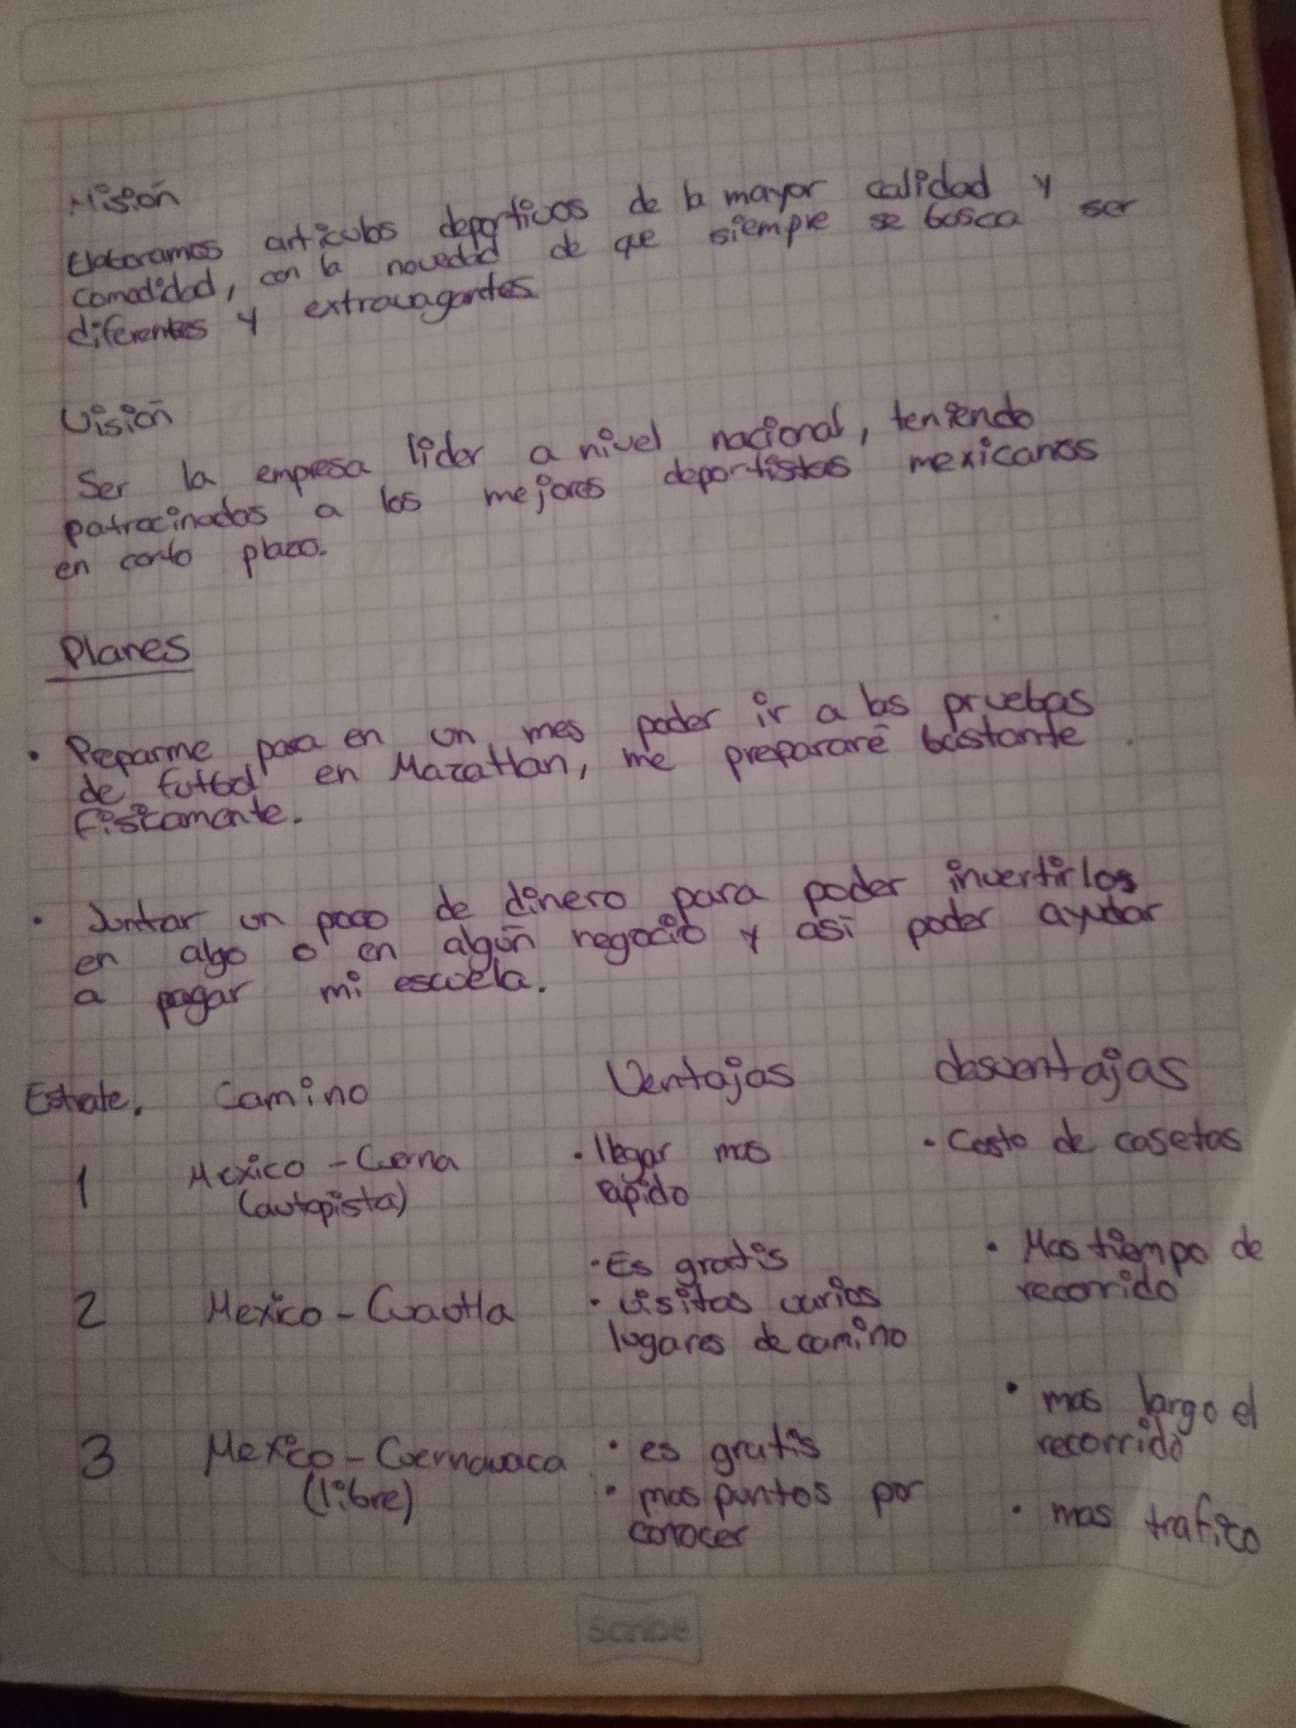 Misión
Elaboramos articulos deportivos de la mayor calidad y
comodidad, con la novedad de que siempre se busca ser
diferentes y extravagantes
Visión
Ser la empresa lider a nivel nacional, teniendo
patrocinados a los mejores deportistas mexicanos
en corto plazo.
Planes
• Preparme para en un mes poder ir a las pruebas
de futbol en Mazatlan, me prepararé bastante
fisicamente.
• Juntar un poco de dinero para poder invertirlos
en algo o en algún negocio y así poder ayudar
a pagar mi escuela.
Estrate. Camino Ventajas desventajas
1 Mexico - Cuerna • llegar mas • Costo de casetas
(autopista) rapido
2 Mexico - Cuautla • Es gratis • Mas tiempo de
• visitas varios recorrido
lugares de camino
3 Mexico - Cuernavaca • es gratis • mas largo el
(libre) • mas puntos por recorrido
conocer • mas trafico
Scribe